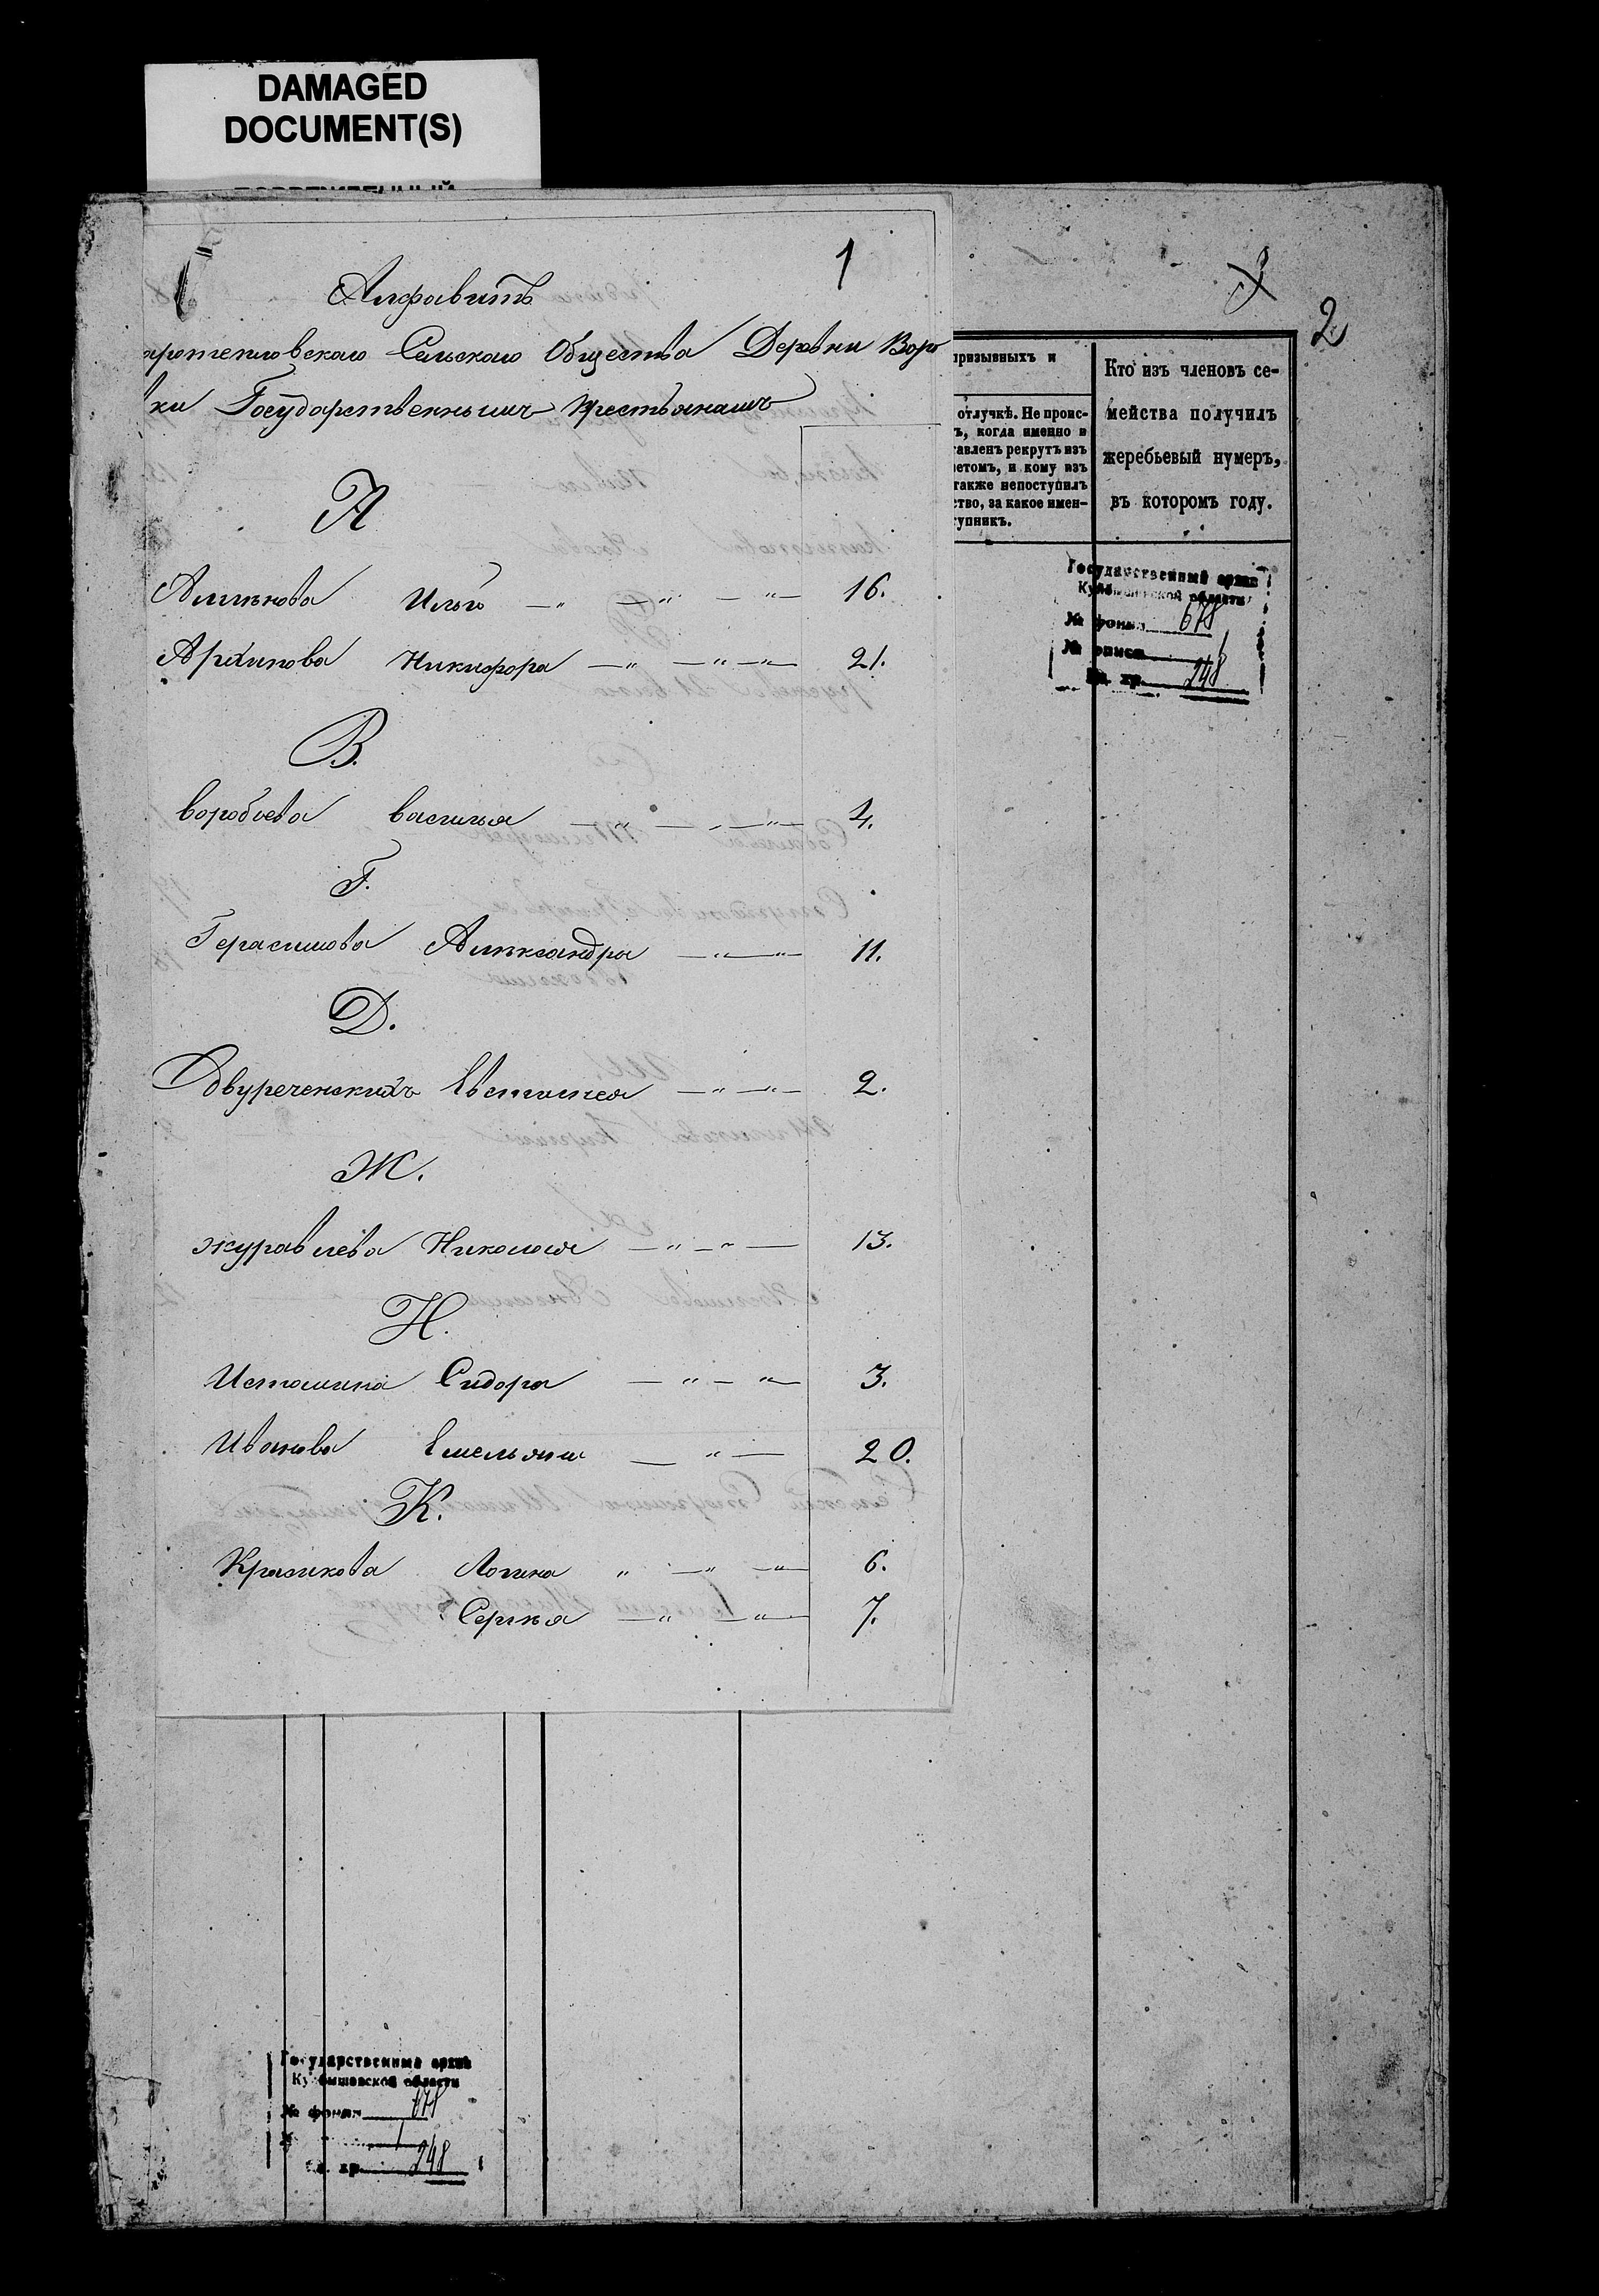 DAMAGED
DOCUMENT(S)
1
Алфавитъ
Сельскаго Общества Деревни Воро
ки Государственнымъ крестьянамъ
А
Алѣкова Ильи 16.
Архипова Никифора 21.
В.
Воробьева Василья 4.
Г.
Герасимова Алѣксандра 11.
Д.
Двуреченскихъ Евстигнея 2.
Ж.
Журавлева Николая 13.
И.
Истомина Сидора 3.
Иванова Емельяна 20.
К.
Красикова Логина 6.
Сергѣя 7.
2
призывныхъ и
отлучкѣ. Не проис-
ъ, когда именно и
тавленъ рекрутъ изъ
четомъ, и кому изъ
также непоступилъ
ство, за какое имен-
тупникъ.
Кто изъ членовъ се-
мейства получилъ
жеребьевый нумеръ,
въ которомъ году.
Государственный архив
Куйбышевской области
№ фонда 678
№ описи 1
Ед. хр. 248
Государственный архив
Куйбышевской области
№ фонда 678
1
Ед. хр. 248